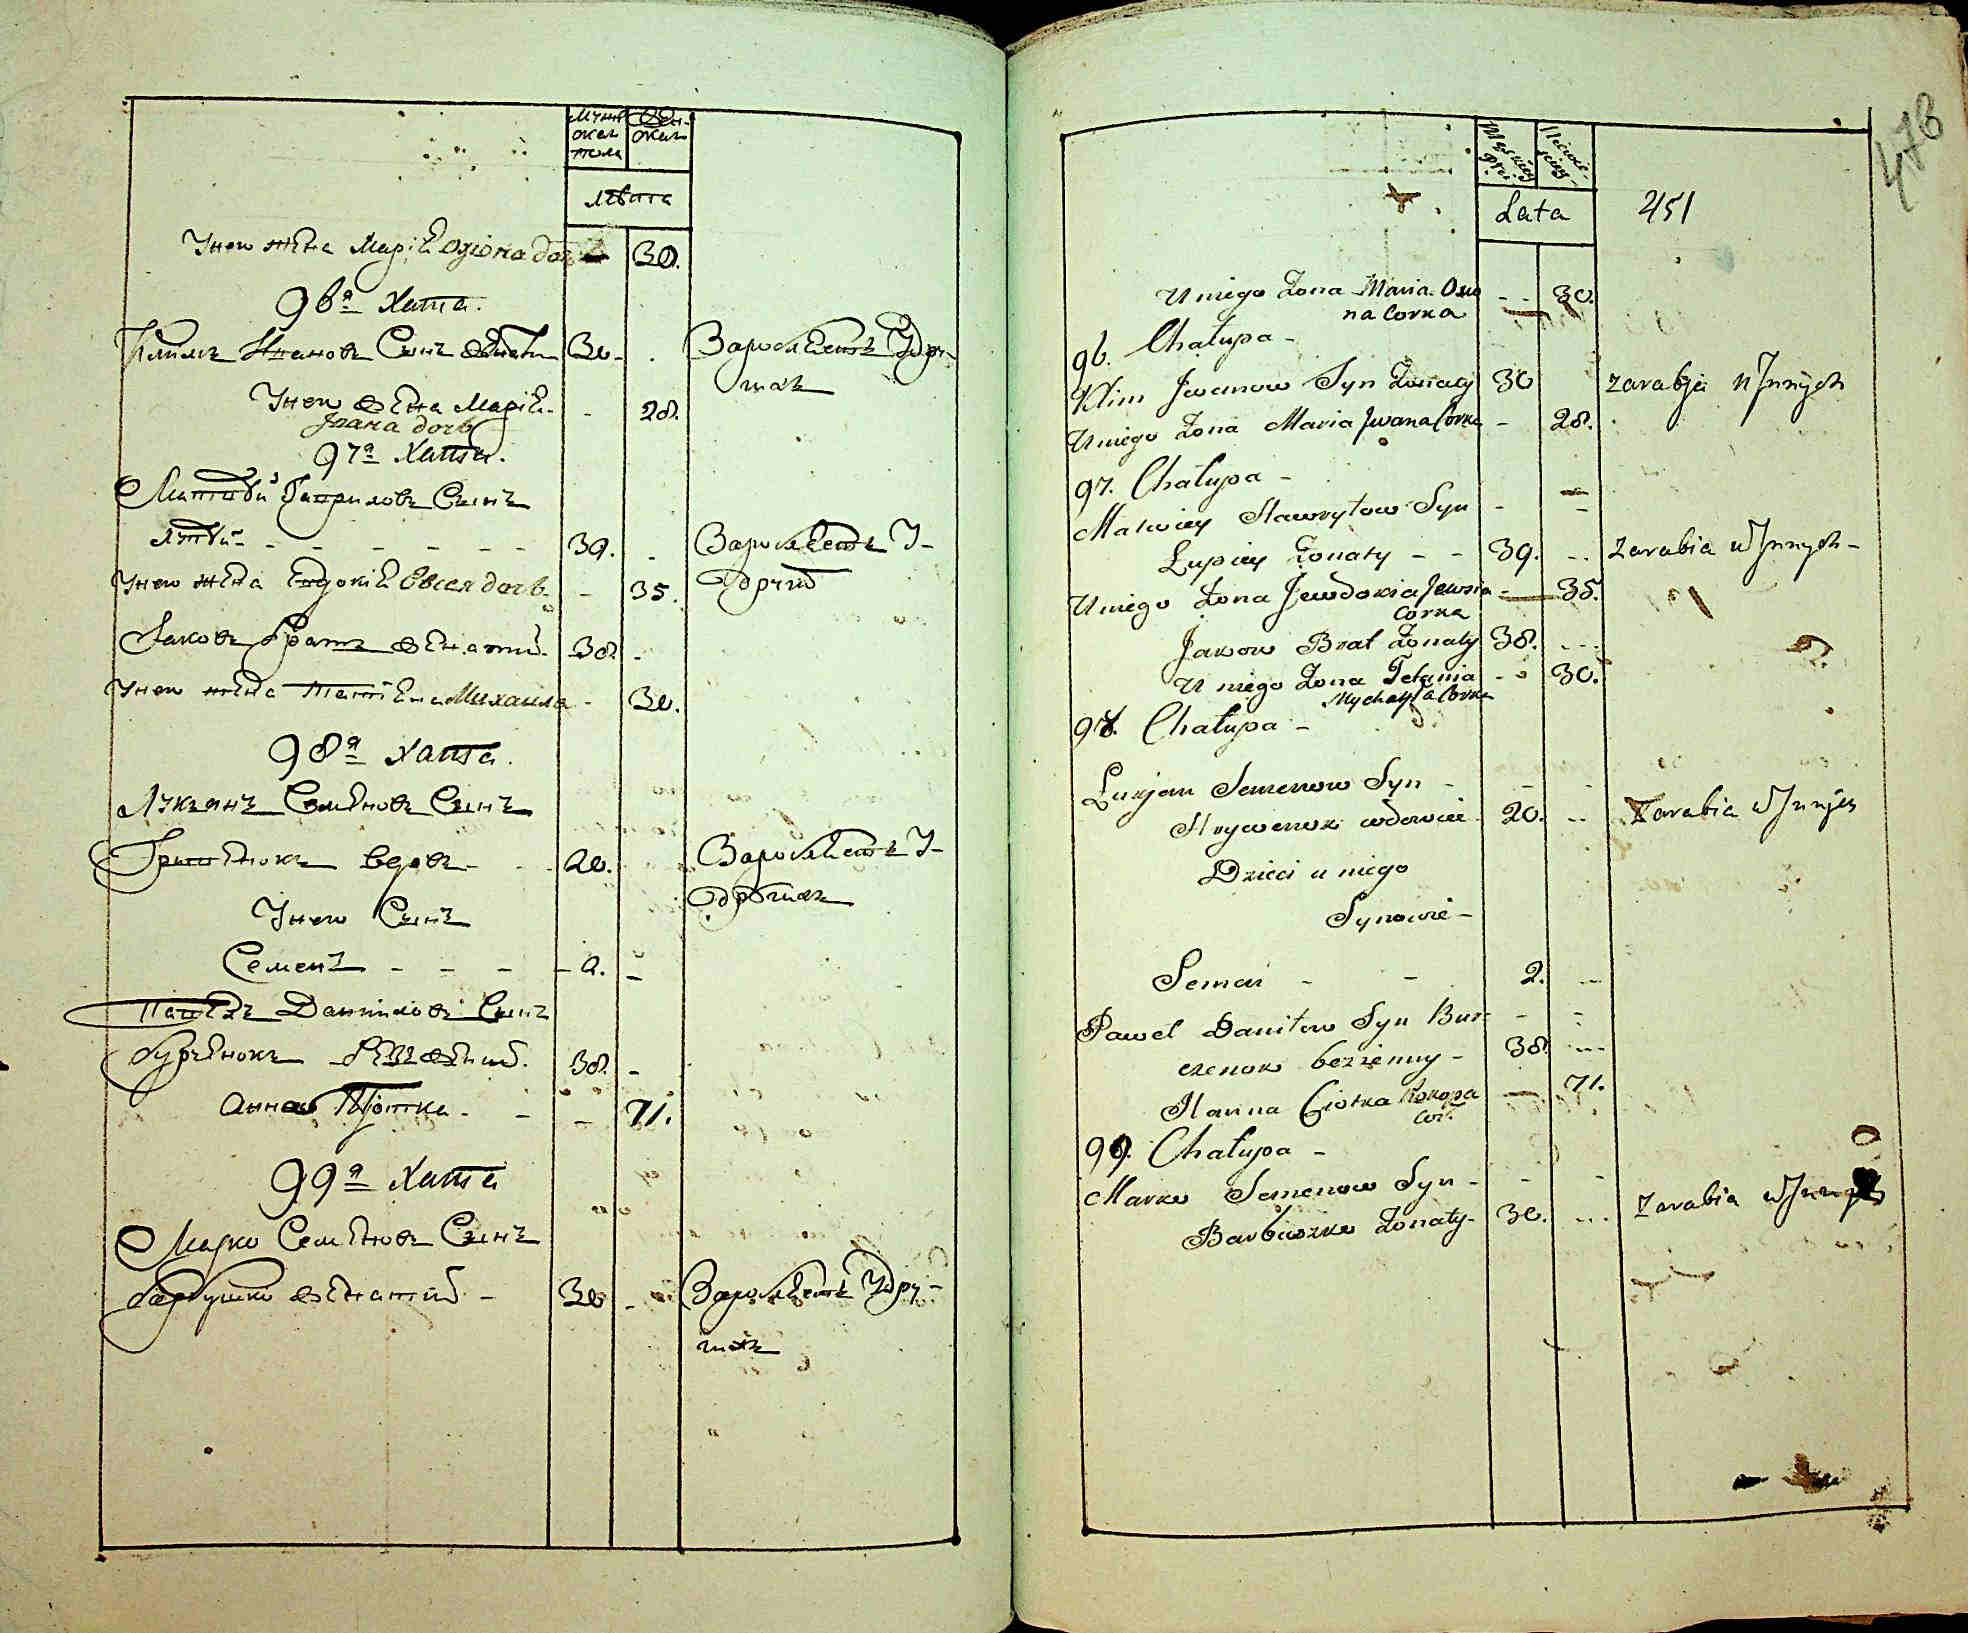 Мужескаго пола
Женскаго
Лѣта
У него жена Марія Оѳіона дочь 30.
96я Хата.
Климъ Ивановъ Сынъ женатый 30.
Заробляетъ У других
У него жена Марія 28.
Ивана дочь
97я Хата.
Матвѣй Гаврыловъ Сынъ
Лупѣй 39.
Заробляетъ У
других
У него жена Евдокія Овсея дочь 35.
Яковъ братъ женатый 38.
У него жена Татіана Михаила 30.
98я Хата.
Лукьянъ Семеновъ Сынъ
вдовъ 20.
Заробляетъ У
других
У него Сынъ
Семенъ 2.
Павелъ Даниловъ Сынъ
38.
Анна Тіотка 71.
99я Хата
Марко Семеновъ Сынъ
Барбушко женатый 30
Заробляетъ У других
476
Lata
451
U niego Żona Maria Oxio 30.
na Corka
96. Chałupa
Klim Jwanow Syn Żonaty 30 zarabja u Jnnych
U niego Żona Maria Jwana Corka 28.
97. Chałupa
Matwiey Hawryłow Syn
Łupiey Żonaty 39. zarabia u Jnnych
U niego Żona Jewdokia Jewsia 35.
Corka
Jakow Brat Żonaty 38.
U niego Żona Tetania 30.
Mychayła Corka
98. Chałupa
Łukjan Semenow Syn
Hrycenuk wdowiec 20. Zarabia u Jnnych
Dzieci u niego
Synowie
Semen 2.
Paweł Daniłow Syn Bur-
czenok bezżenny 38
Hanna Ciotka Prokopa 71.
Cor.
99. Chałupa
Marko Semenow Syn
Barbuszko Żonaty 30. Zarabia u Jnnych